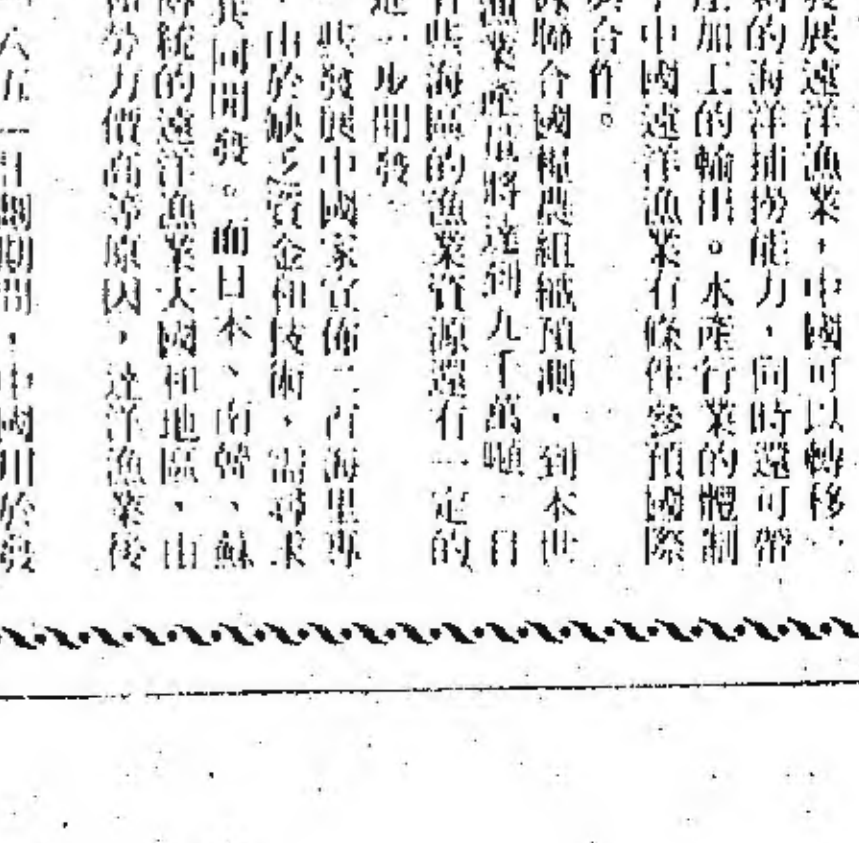 發展遠洋漁業，中國可以轉移一
的海洋捕撈能力，同時還可帶
產加工的輸出。水產行業的體制
中國遠洋漁業有條件參預國際
合作。
聯合國糧農組織預測，到本世
漁業產量將達到九千萬噸。目
有些海區的漁業資源還有一定的
進一步開發。
些發展中國家宣佈二百海里專
，由於缺乏資金和技術，需尋求
共同開發。而日本、南韓、蘇
傳統的遠洋漁業大國和地區，由
和勞力價高等原因，遠洋漁業後
六五一計劃期間，中國用於發